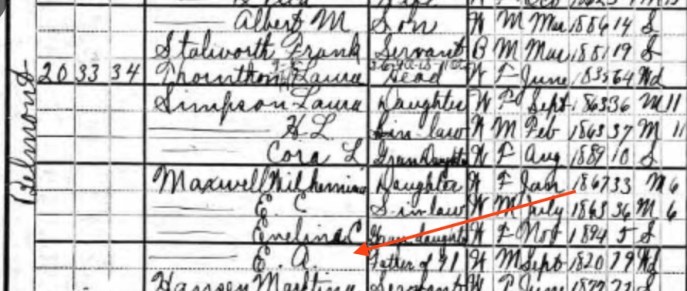 Albert M Son W M Mar 1886 14 S
Stalworth Frank Servant B M Mar 1881 19 S
20 33 34 Thornthon Laura Head W F June 1835 64 Wd
Simpson Laura Daughter W F Sept 1863 36 M 11
H L Sin-law W M Feb 1863 37 M 11
Cora L Gran Daughte W F Aug 1889 10 S
Belmond
Maxwell Wilhemina Daughter W F Jan 1867 33 M 6
E. C S in law W M July 1863 36 M 6
Evelina C Gran daughte W F Nov 1894 5 S
E. A. Father of 91 W M Sept 1820 79 Wd
Hansen Servant